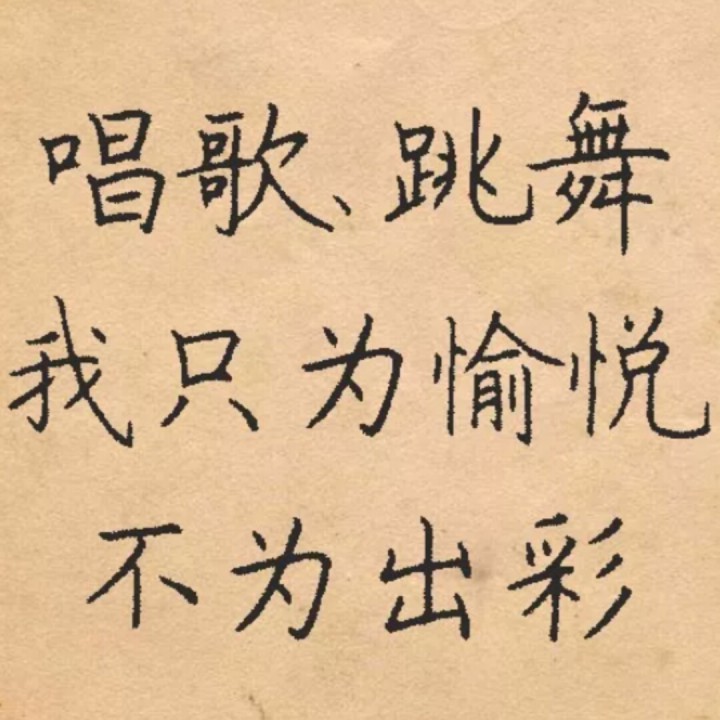 唱歌、跳舞
我只为愉悦
不为出彩